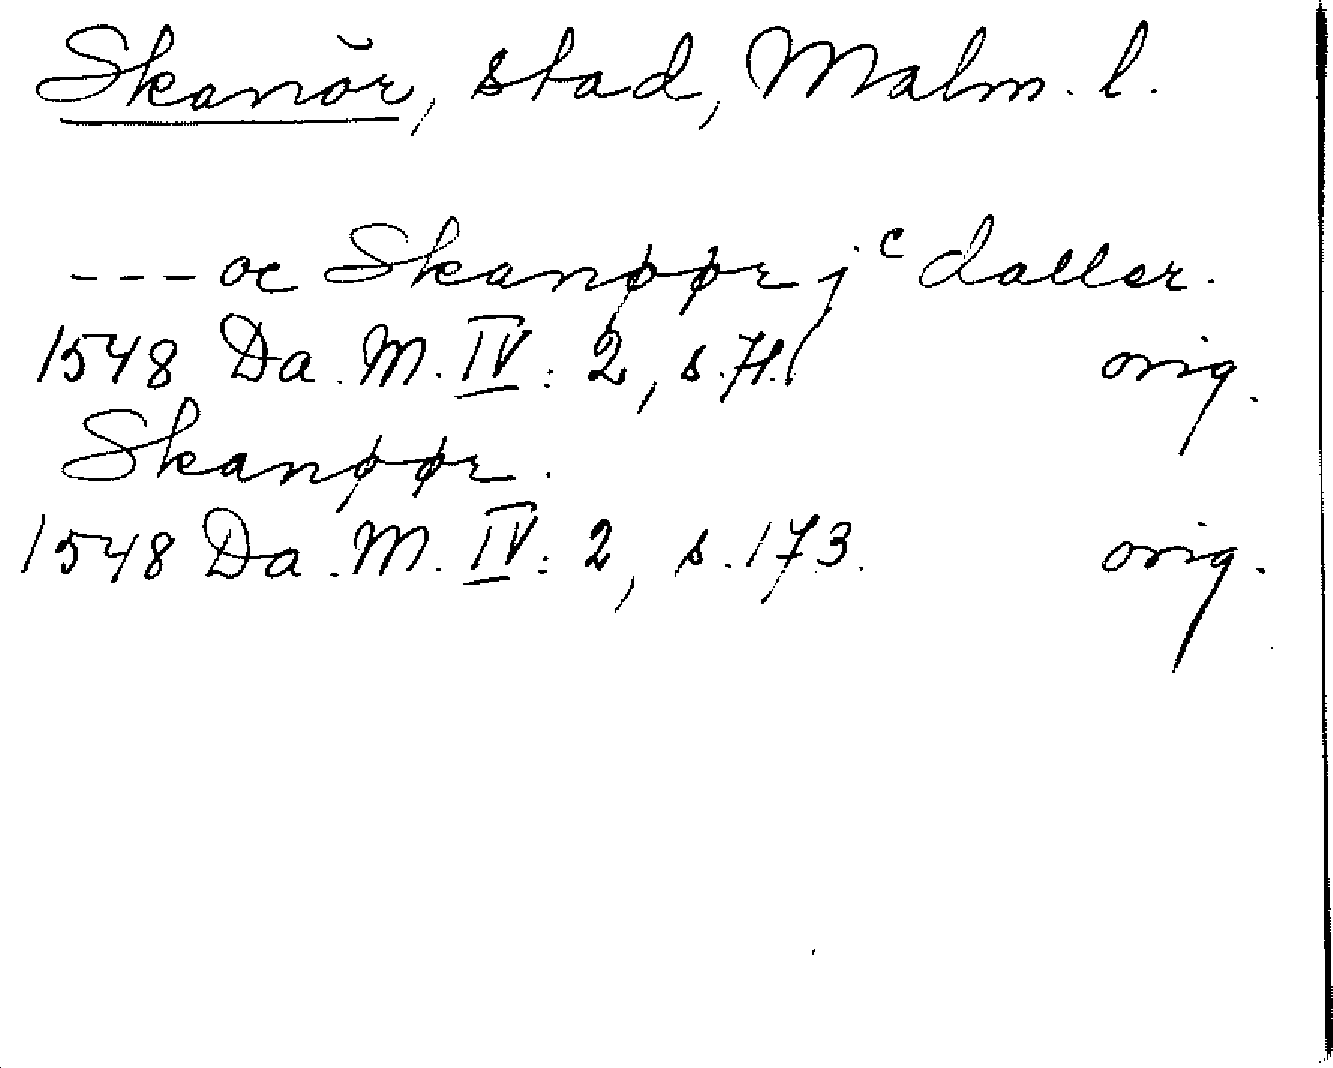 Skanör, stad, Malm. l.
--- oc Skanøør jᶜ daller.
1548 Da. M. IV: 2, s. 71. orig.
Skanøør.
1548 Da. M. IV: 2, s. 173. orig.